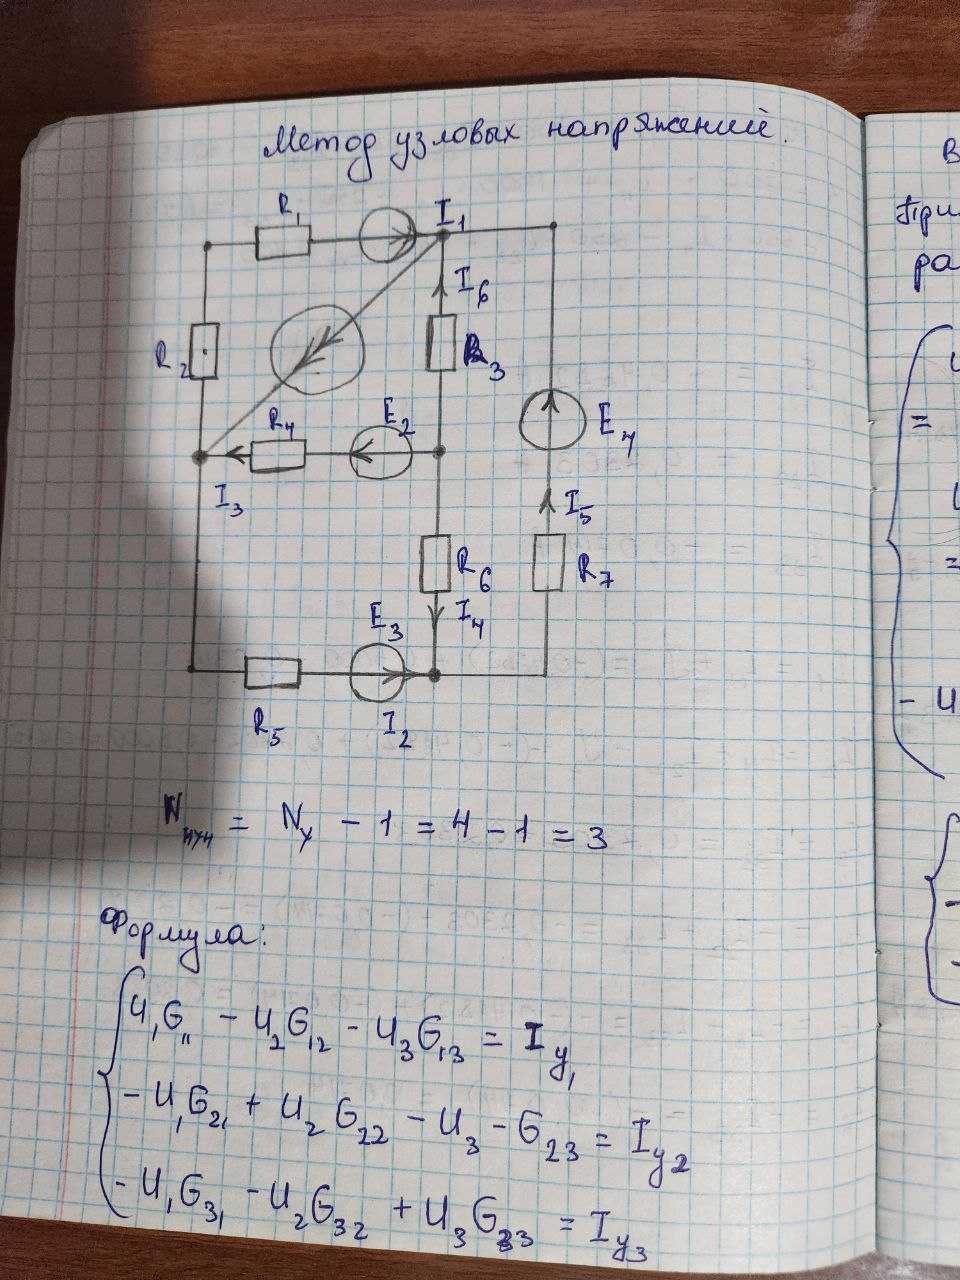 Метод узловых напряжений.
R1
I1
I6
R2
R3
R4
E2
E4
I3
I5
R6
R7
E3
I4
R5
I2
Nмун = Nу - 1 = 4 - 1 = 3
Формула:
U1G11 - U2G12 - U3G13 = Iу1
- U1G21 + U2G22 - U3 - G23 = Iу2
- U1G31 - U2G32 + U3G33 = Iу3
В
При
ра
=
=
- U